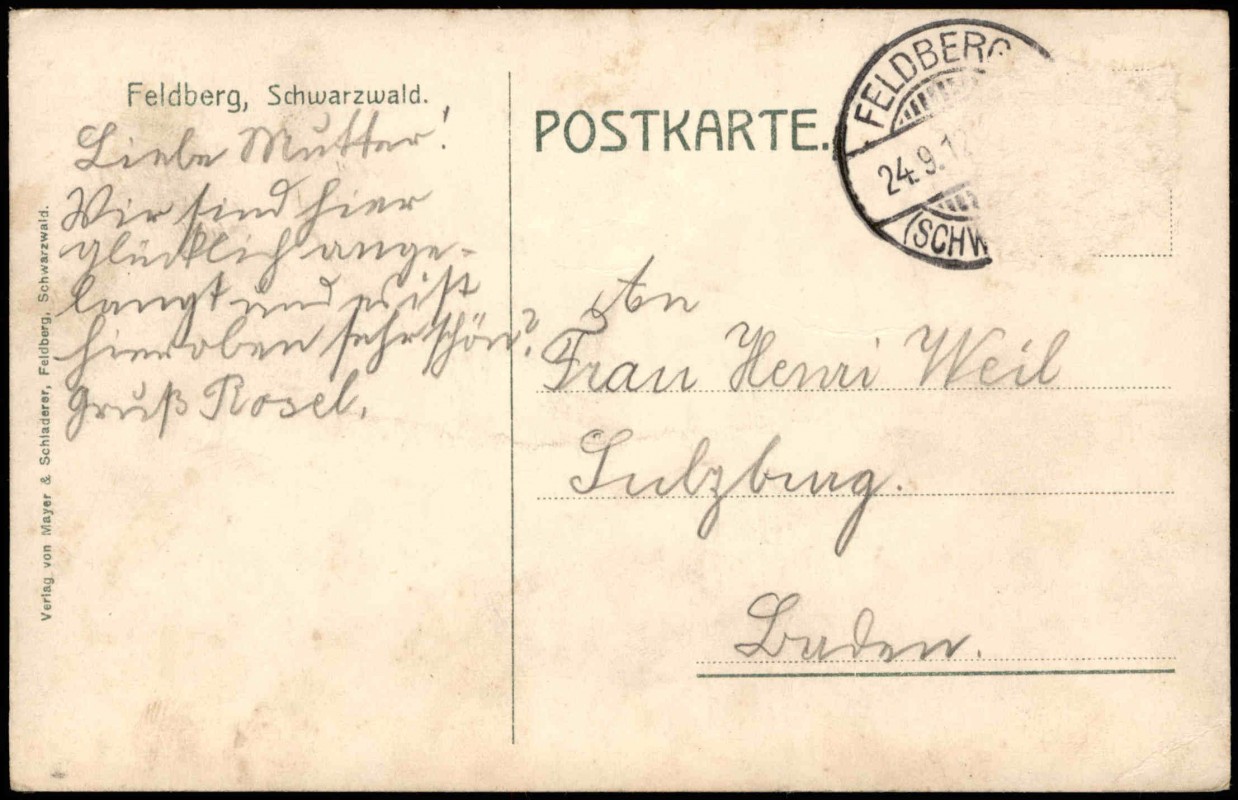 Feldberg, Schwarzwald.
Liebe Mutter!
Wir sind hier
glücklich ange-
langt und es ist
hieroben sehr schön.
Gruß Rosel.
Verlag von Mayer & Schladerer, Feldberg, Schwarzwald.
POSTKARTE.
FELDBERG
24.9.12
(SCHW
An
Frau Henri Weil
Sulzburg.
Baden.